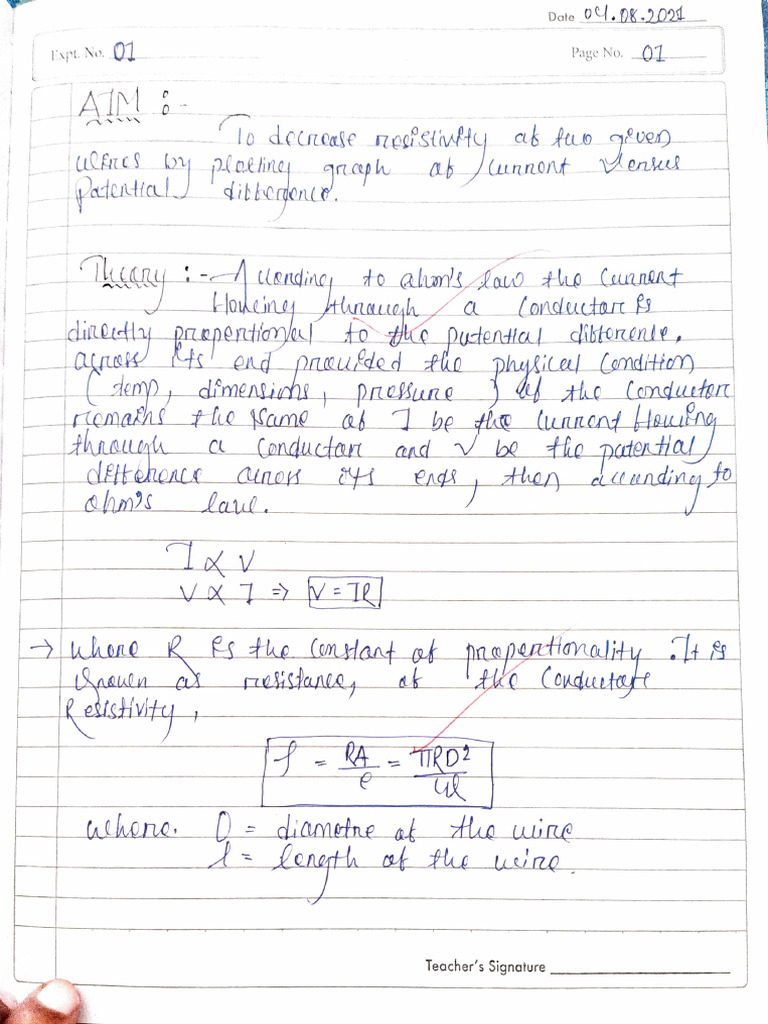 Date 04.08.2021
Expt. No. 01
Page No. 01
AIM :-
To decrease resistivity of two given
wires by plotting graph of current versus
Potential difference.
Theory :- According to ohm's law the current
flowing through a conductor is
directly propertional to the potential difference.
across its end provided the physical condition
(temp, dimensions, pressure) of the conductor
remains the same of I be the current flowing
through a conductor and V be the potential
difference across its ends, then according to
ohm's law.
I ∝ V
V ∝ I => V = IR
→ where R is the constant of propertionality. It is
known as resistance, of the conductor
Resistivity,
ρ = RA/l = πRD²/4l
where. D = diametre of the wire
l = length of the wire.
Teacher's Signature